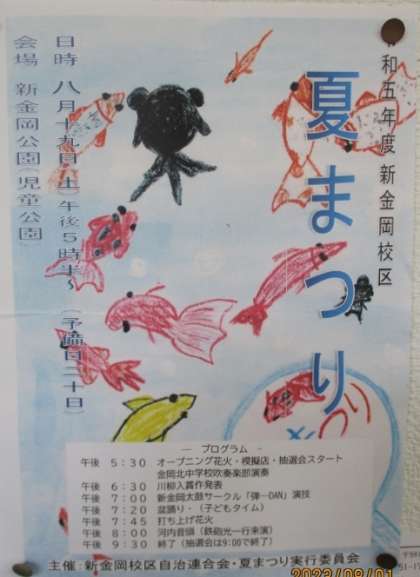 令和五年度 新金岡校区
夏まつり
日時 八月十九日(土)午後5時半〜 (予備日二十日)
会場 新金岡公園(児童公園)
― プログラム ―
午後 5:30 オープニング花火・模擬店・抽選会スタート
金岡北中学校吹奏楽部演奏
午後 6:30 川柳入賞作発表
午後 7:00 新金岡太鼓サークル「弾―DAN」演技
午後 7:20 盆踊り・(子どもタイム)
午後 7:45 打ち上げ花火
午後 8:00 河内音頭(鉄砲光一行来演)
午後 9:30 終了(抽選会は9:00で終了)
主催:新金岡校区自治連合会・夏まつり実行委員会